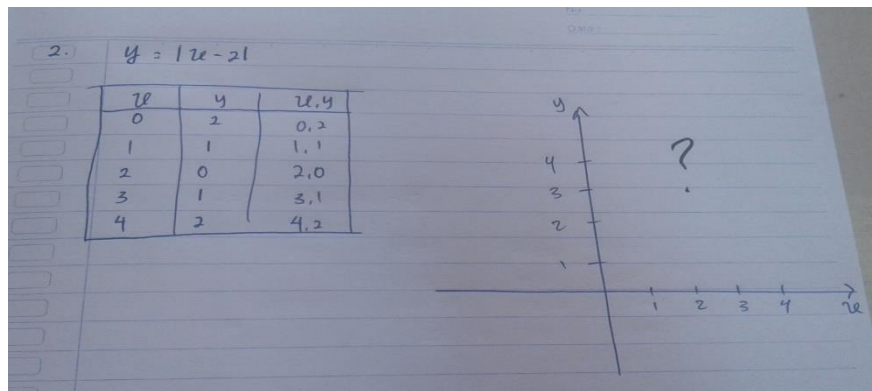 2. y = |x-2|
x y x,y
0 2 0,2
1 1 1,1
2 0 2,0
3 1 3,1
4 2 4,2
y
4
?
3
2
1
1 2 3 4 x